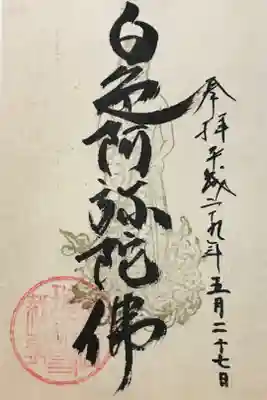 奉拝 平成二十九年 五月二十七日
白色阿弥陀佛